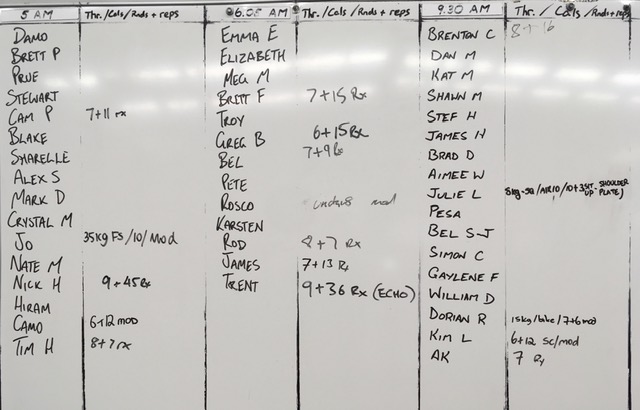 5 AM Thr./Cals/Rnds + reps
DAMO
BRETT P
PRUE
STEWART
CAM P 7+11 rx
BLAKE
SHARELLE
ALEX S
MARK D
CRYSTAL M
JO 35kg FS/10/Mod
NATE M
NICK H 9+45 Rx
HIRAM
CAMO 6+12 mod
TIM H 8+7 rx
6.05 AM Thr./Cals/Rnds + reps
EMMA E
ELIZABETH
MEG M
BRETT F 7+15 Rx
TROY
GREG B 6+15 Rx
BEL 7+9 Rx
PETE
ROSCO mod
KARSTEN
ROD 8+7 Rx
JAMES 7+13 Rx
TRENT 9+36 Rx (ECHO)
9.30 AM Thr./Cals/Rnds + reps
BRENTON C 8+16
DAN M
KAT M
SHAWN M
STEF H
JAMES H
BRAD D
AIMEE W
JULIE L SHOULDER PLATE)
PESA
BEL S-J
SIMON C
GAYLENE F
WILLIAM D
DORIAN R 15kg/bike/7+6 mod
KIM L 6+12 SC/mod
AK 7 Rx